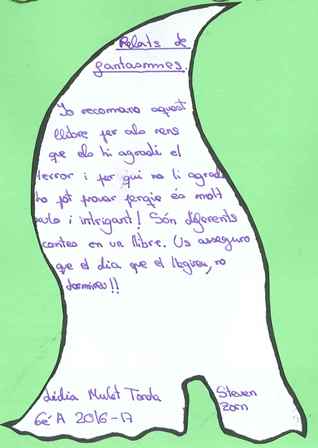 Relats de
fantasmes.
Jo recomano aquest
llibre per als nens
que els hi agradi el
terror i per qui no li agradi
ho pot provar perquè és molt
xulo i intrigant! Són diferents
contes en un llibre. Us asseguro
que el dia que el llegireu, no
dormireu!!
Lídia Mulet Tonda
6è A 2016-17
Steven
Zorn